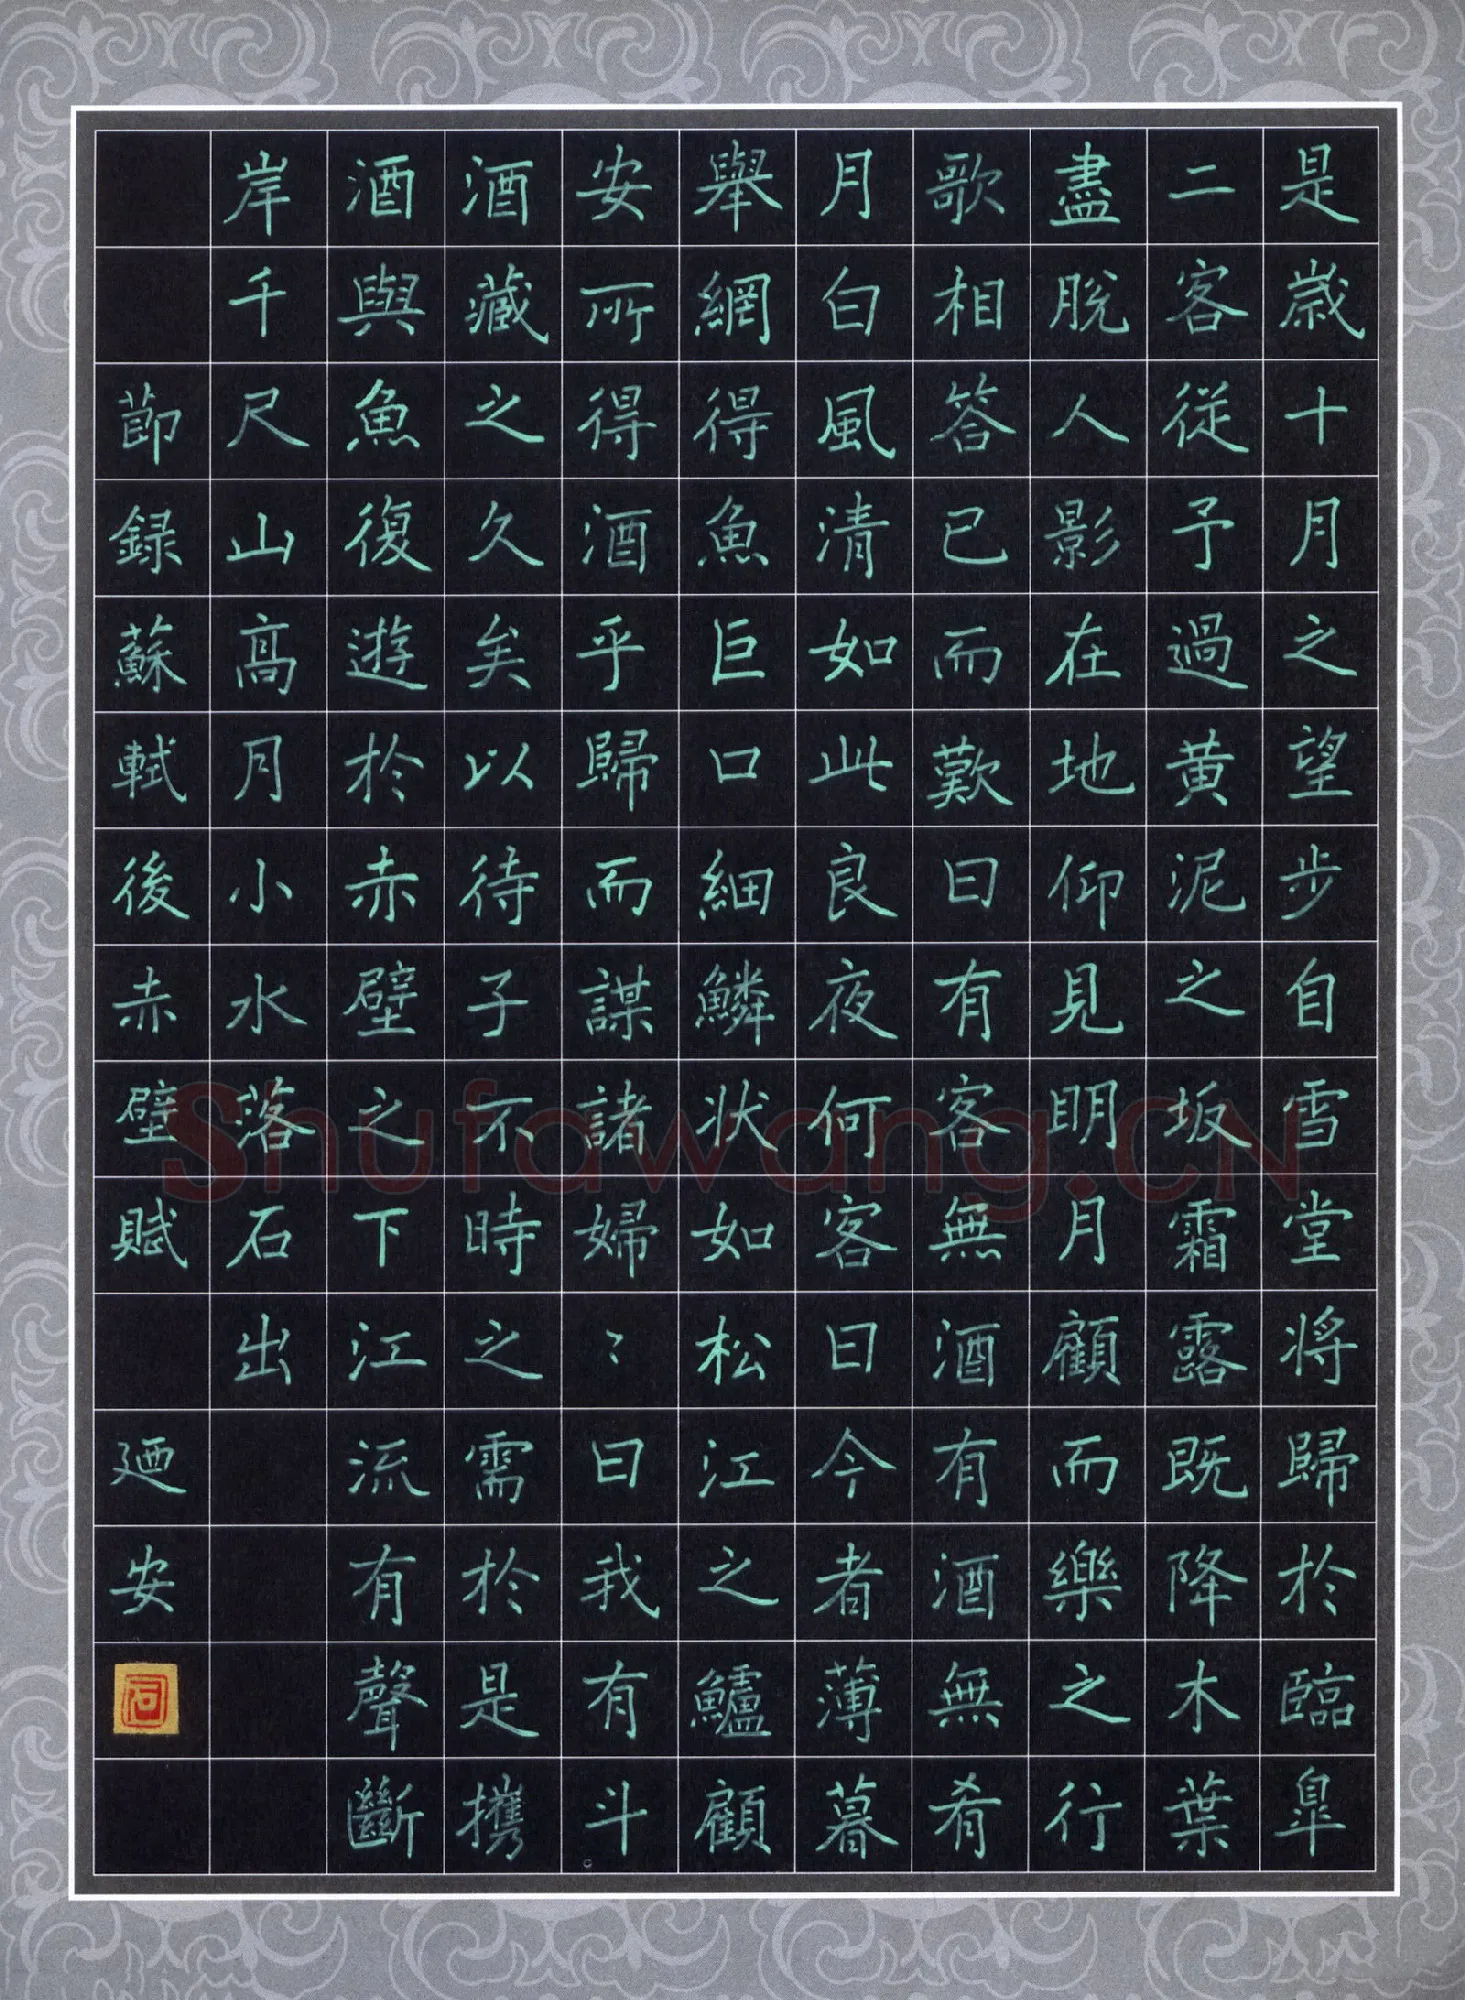 是歲十月之望步自雪堂將歸於臨皐
二客從予過黃泥之坂霜露既降木葉
盡脫人影在地仰見明月顧而樂之行
歌相答已而歎曰有客無酒有酒無肴
月白風清如此良夜何客曰今者薄暮
舉網得魚巨口細鱗狀如松江之鱸顧
安所得酒乎歸而謀諸婦〻曰我有斗
酒藏之久矣以待子不時之需於是攜
酒與魚復遊於赤壁之下江流有聲斷
岸千尺山高月小水落石出
節録蘇軾後赤壁賦 迺安
Shufawang.CN